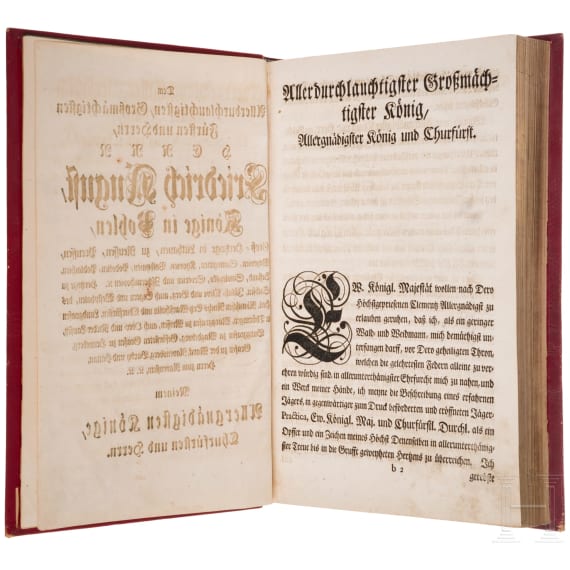 Dem
Allerdurchlauchtigsten, Großmächtigsten
Fürsten und Herrn,
HERRN
Friedrich August,
Könige in Pohlen,
Meinem
Allergnädigsten Könige,
Churfürsten und Herrn.
Allerdurchlauchtigster Großmäch-
tigster König/
Allergnädigster König und Churfürst.
EW. Königl. Majestät wollen nach Dero
Höchstgepriesenen Clementz Allergnädigst zu
erlauben geruhen, daß ich, als ein geringer
Wald- und Weidmann, mich demüthigst un-
terfangen darff, vor Dero geheiligten Thron,
welchen die gelehrtesten Federn alleine zu ver-
ehren würdig sind, in allerunterthänigster Ehrfurcht mich zu nahen, und
ein Werck meiner Hände, ich meyne die Beschreibung eines erfahrnen
Jägers, in gegenwärtiger zum Druck beförderten und eröffneten Jäger-
Practica, Ew. Königl. Maj. und Churfürstl. Durchl. als ein
Opffer und ein Zeichen meines Höchst Denenselben in allerunterthänig-
ster Treue bis in die Grufft geweyheten Hertzens zu überreichen. Ich
b 2
getröste